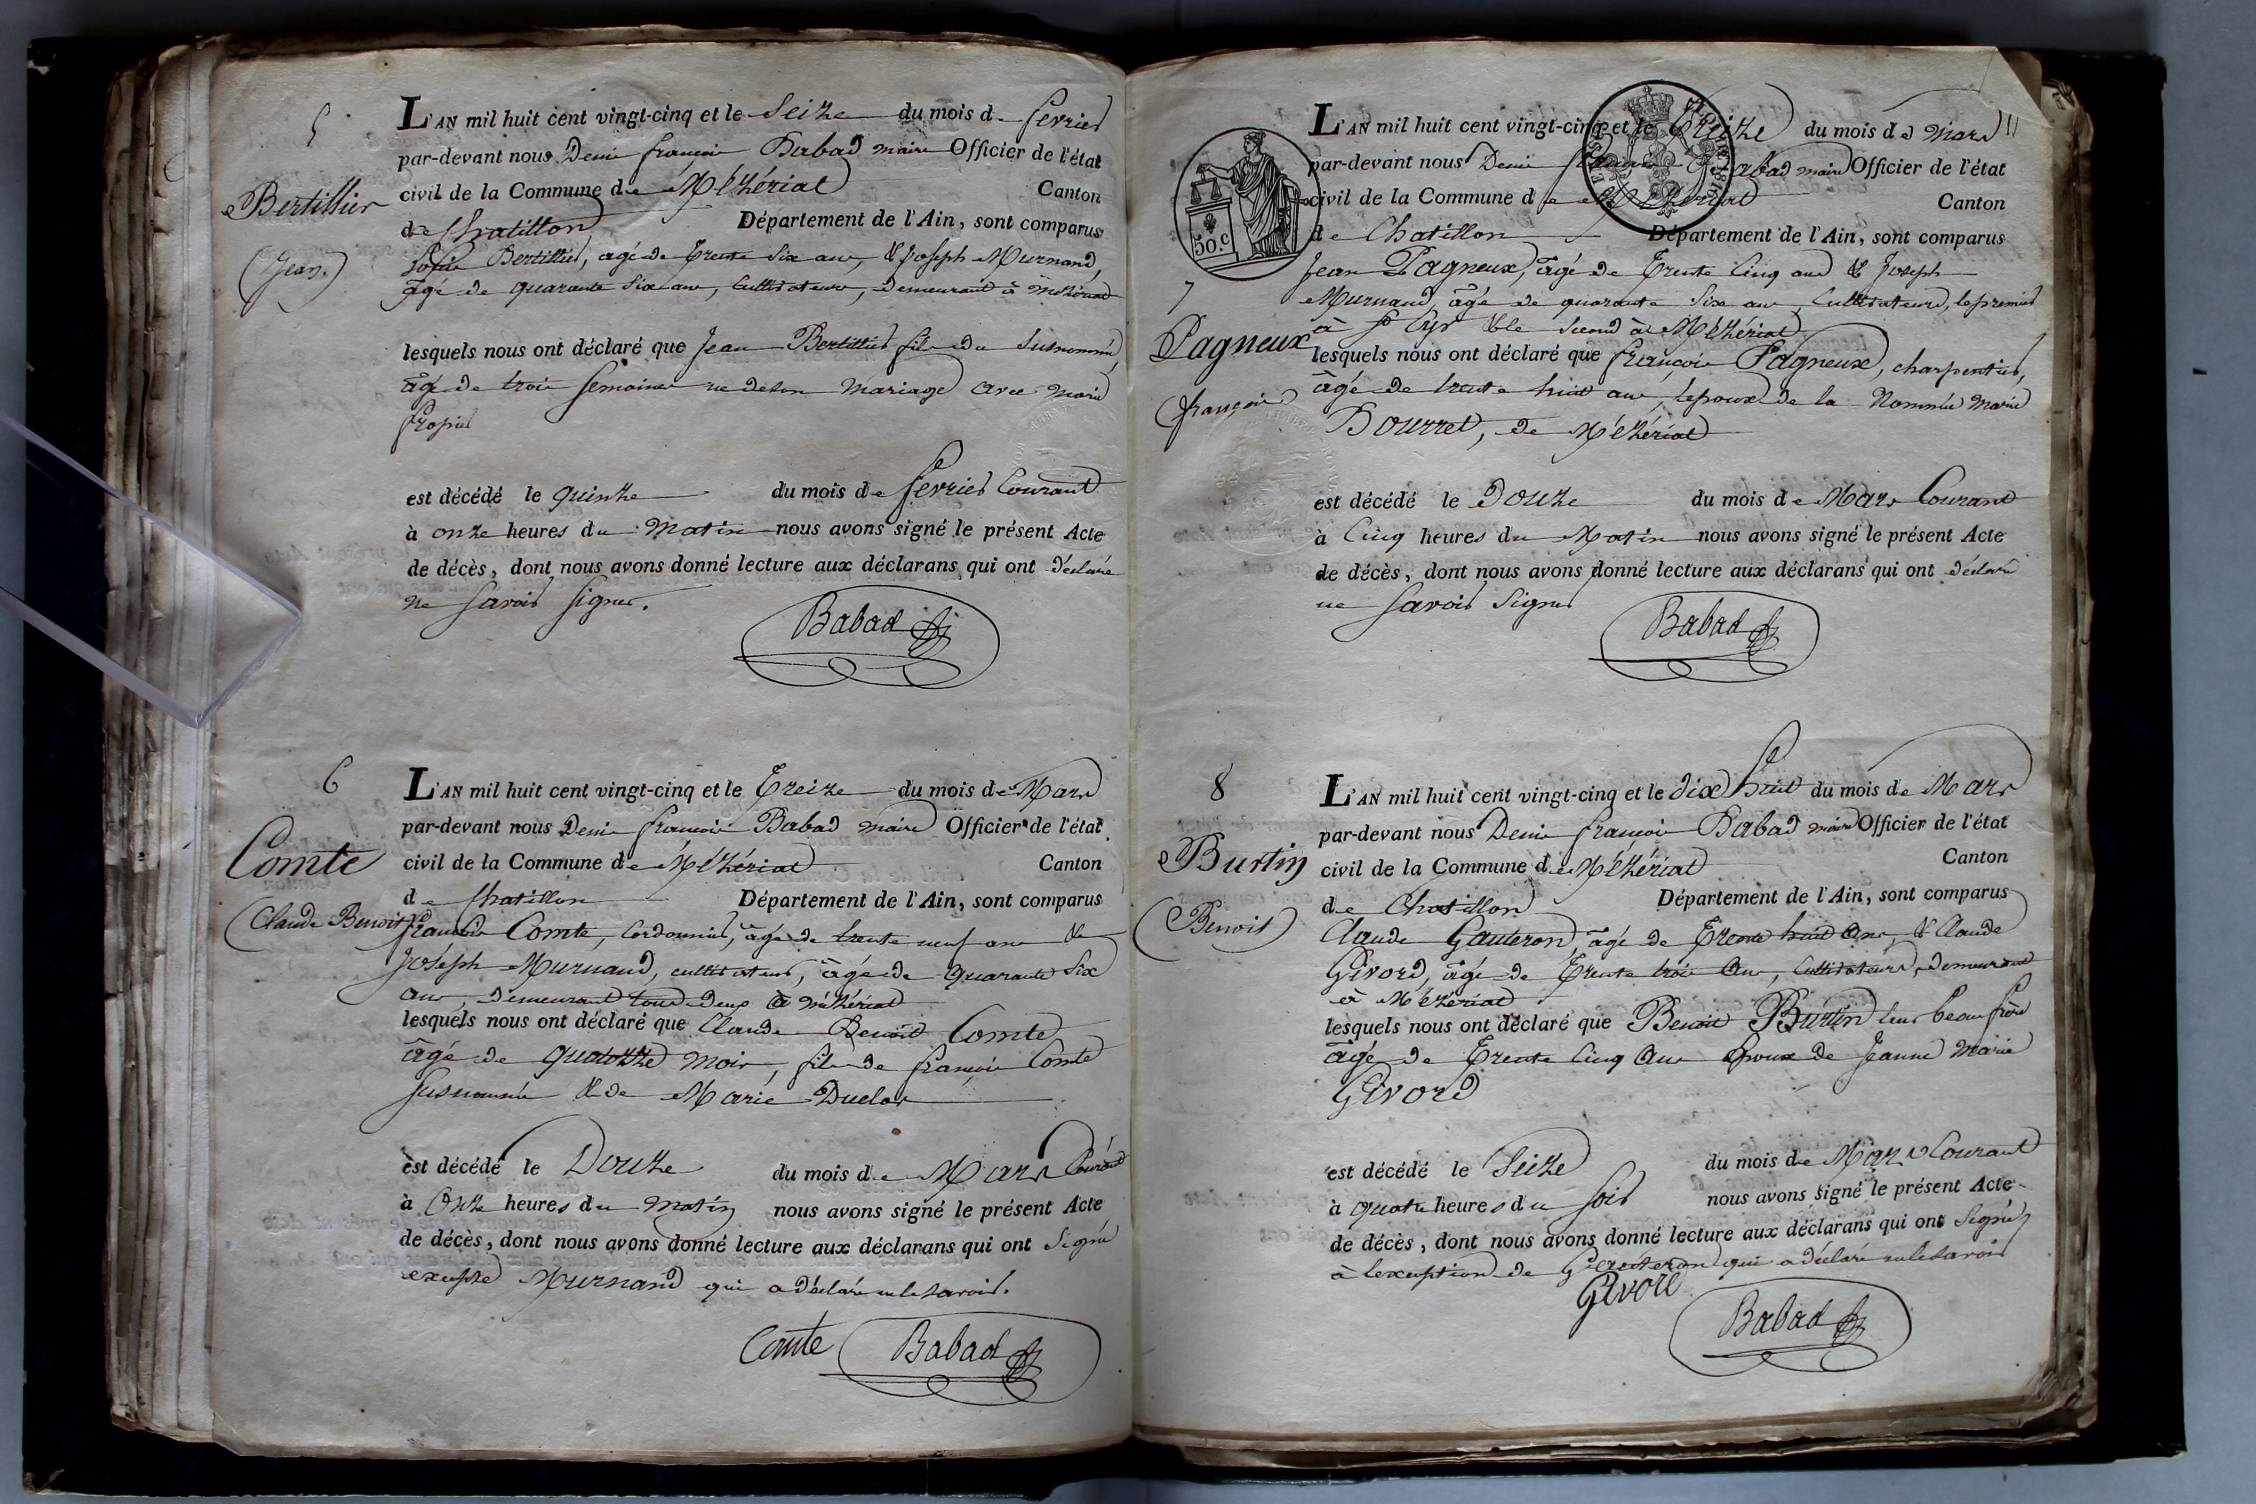 5
L'AN mil huit cent vingt-cinq et le Seize du mois de fevrier
par-devant nous Denis françois Babad maire Officier de l'état
Bertillier
civil de la Commune de Mézériat Canton
de Chatillon Département de l'Ain, sont comparus
(Jean)
Bertillier, agé de trente six ans, & joseph Murnand,
âgé de quarante six ans, cultivateurs, demeurant à Mézériat
lesquels nous ont déclaré que Jean Bertillier fils du susnommé
âgé de trois semaines né de son mariage avec marie
est décédé le quinze du mois de fevrier Courant
à onze heures du matin nous avons signé le présent Acte
de décès, dont nous avons donné lecture aux déclarans qui ont déclaré
ne savoir signer.
Babad
6
L'AN mil huit cent vingt-cinq et le Treize du mois de Mars
par-devant nous Denis françois Babad maire Officier de l'état
Comte
civil de la Commune de Mézériat Canton
de Chatillon Département de l'Ain, sont comparus
(Claude Benoit)
françois Comte, Cordonnier, âgé de trente neuf ans &
Joseph Murnand, cultivateur, âgé de quarante six
ans, demeurant tous deux à mézériat
lesquels nous ont déclaré que Claude Benoit Comte
âgé de quatorze mois, fils de françois Comte
susnommé & de Marie Duclos
est décédé le Douze du mois de Mars Courant
à Onze heures du matin nous avons signé le présent Acte
de décès, dont nous avons donné lecture aux déclarans qui ont signé
excepté Murnand qui a déclaré ne le savoir.
Comte Babad
11
L'AN mil huit cent vingt-cinq et le Treize du mois de Mars
par-devant nous Denis françois Babad maire Officier de l'état
civil de la Commune de Mézériat Canton
50 c
de Chatillon Département de l'Ain, sont comparus
Jean Pagneux, âgé de Trente Cinq ans & Joseph
7
Murnand, âgé de quarante Six ans, Cultivateurs, le premier
à St Cyr & le second à Mézériat
Pagneux
lesquels nous ont déclaré que françois Pagneux, charpentier,
(françois)
âgé de trente huit ans, l'epoux de la Nommée Marie
Bourret, de Mézériat
est décédé le Douze du mois de Mars Courant
à Cinq heures du Matin nous avons signé le présent Acte
de décès, dont nous avons donné lecture aux déclarans qui ont déclaré
ne savoir signer
Babad
8
L'AN mil huit cent vingt-cinq et le dix huit du mois de Mars
par-devant nous Denis françois Babad maire Officier de l'état
Burtin
civil de la Commune de Mézériat Canton
de Chatillon Département de l'Ain, sont comparus
(Benoit)
Claude Gauteron, âgé de Trente huit Ans, & Claude
Givord, âgé de Trente trois Ans, Cultivateurs, demeurant
à Mézériat
lesquels nous ont déclaré que Benoit Burtin leur beau frère
âgé de Trente Cinq Ans Epoux de Jeanne Marie
Givord
est décédé le Seize du mois de Mars Courant
à quatre heures du soir nous avons signé le présent Acte
de décès, dont nous avons donné lecture aux déclarans qui ont signé
à l'exception de Gauteron qui a déclaré ne le savoir
Givord
Babad